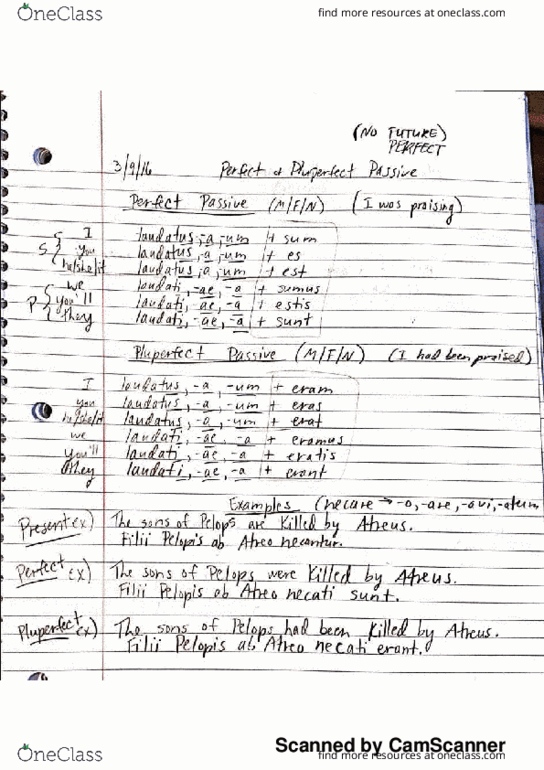 OneClass
find more resources at oneclass.com
(NO FUTURE)
PERFECT
3/9/16 Perfect & Pluperfect Passive
Perfect Passive (M/F/N) (I was praising)
I laudatus, -a, -um + sum
S { you laudatus, -a, -um + es
he/she/it laudatus, -a, -um + est
we laudati, -ae, -a + sumus
P { you'll laudati, -ae, -a + estis
they laudati, -ae, -a + sunt
Pluperfect Passive (M/F/N) (I had been praised)
I laudatus, -a, -um + eram
you laudatus, -a, -um + eras
he/she/it laudatus, -a, -um + erat
we laudati, -ae, -a + eramus
you'll laudati, -ae, -a + eratis
they laudati, -ae, -a + erant
Examples (necare → -o, -are, -avi, -atum
Present ex) The sons of Pelops are killed by Atreus.
Filii Pelopis ab Atreo necantur.
Perfect ex) The sons of Pelops were killed by Atreus.
Filii Pelopis ab Atreo necati sunt.
Pluperfect ex) The sons of Pelops had been killed by Atreus.
Filii Pelopis ab Atreo necati erant.
Scanned by CamScanner
OneClass
find more resources at oneclass.com